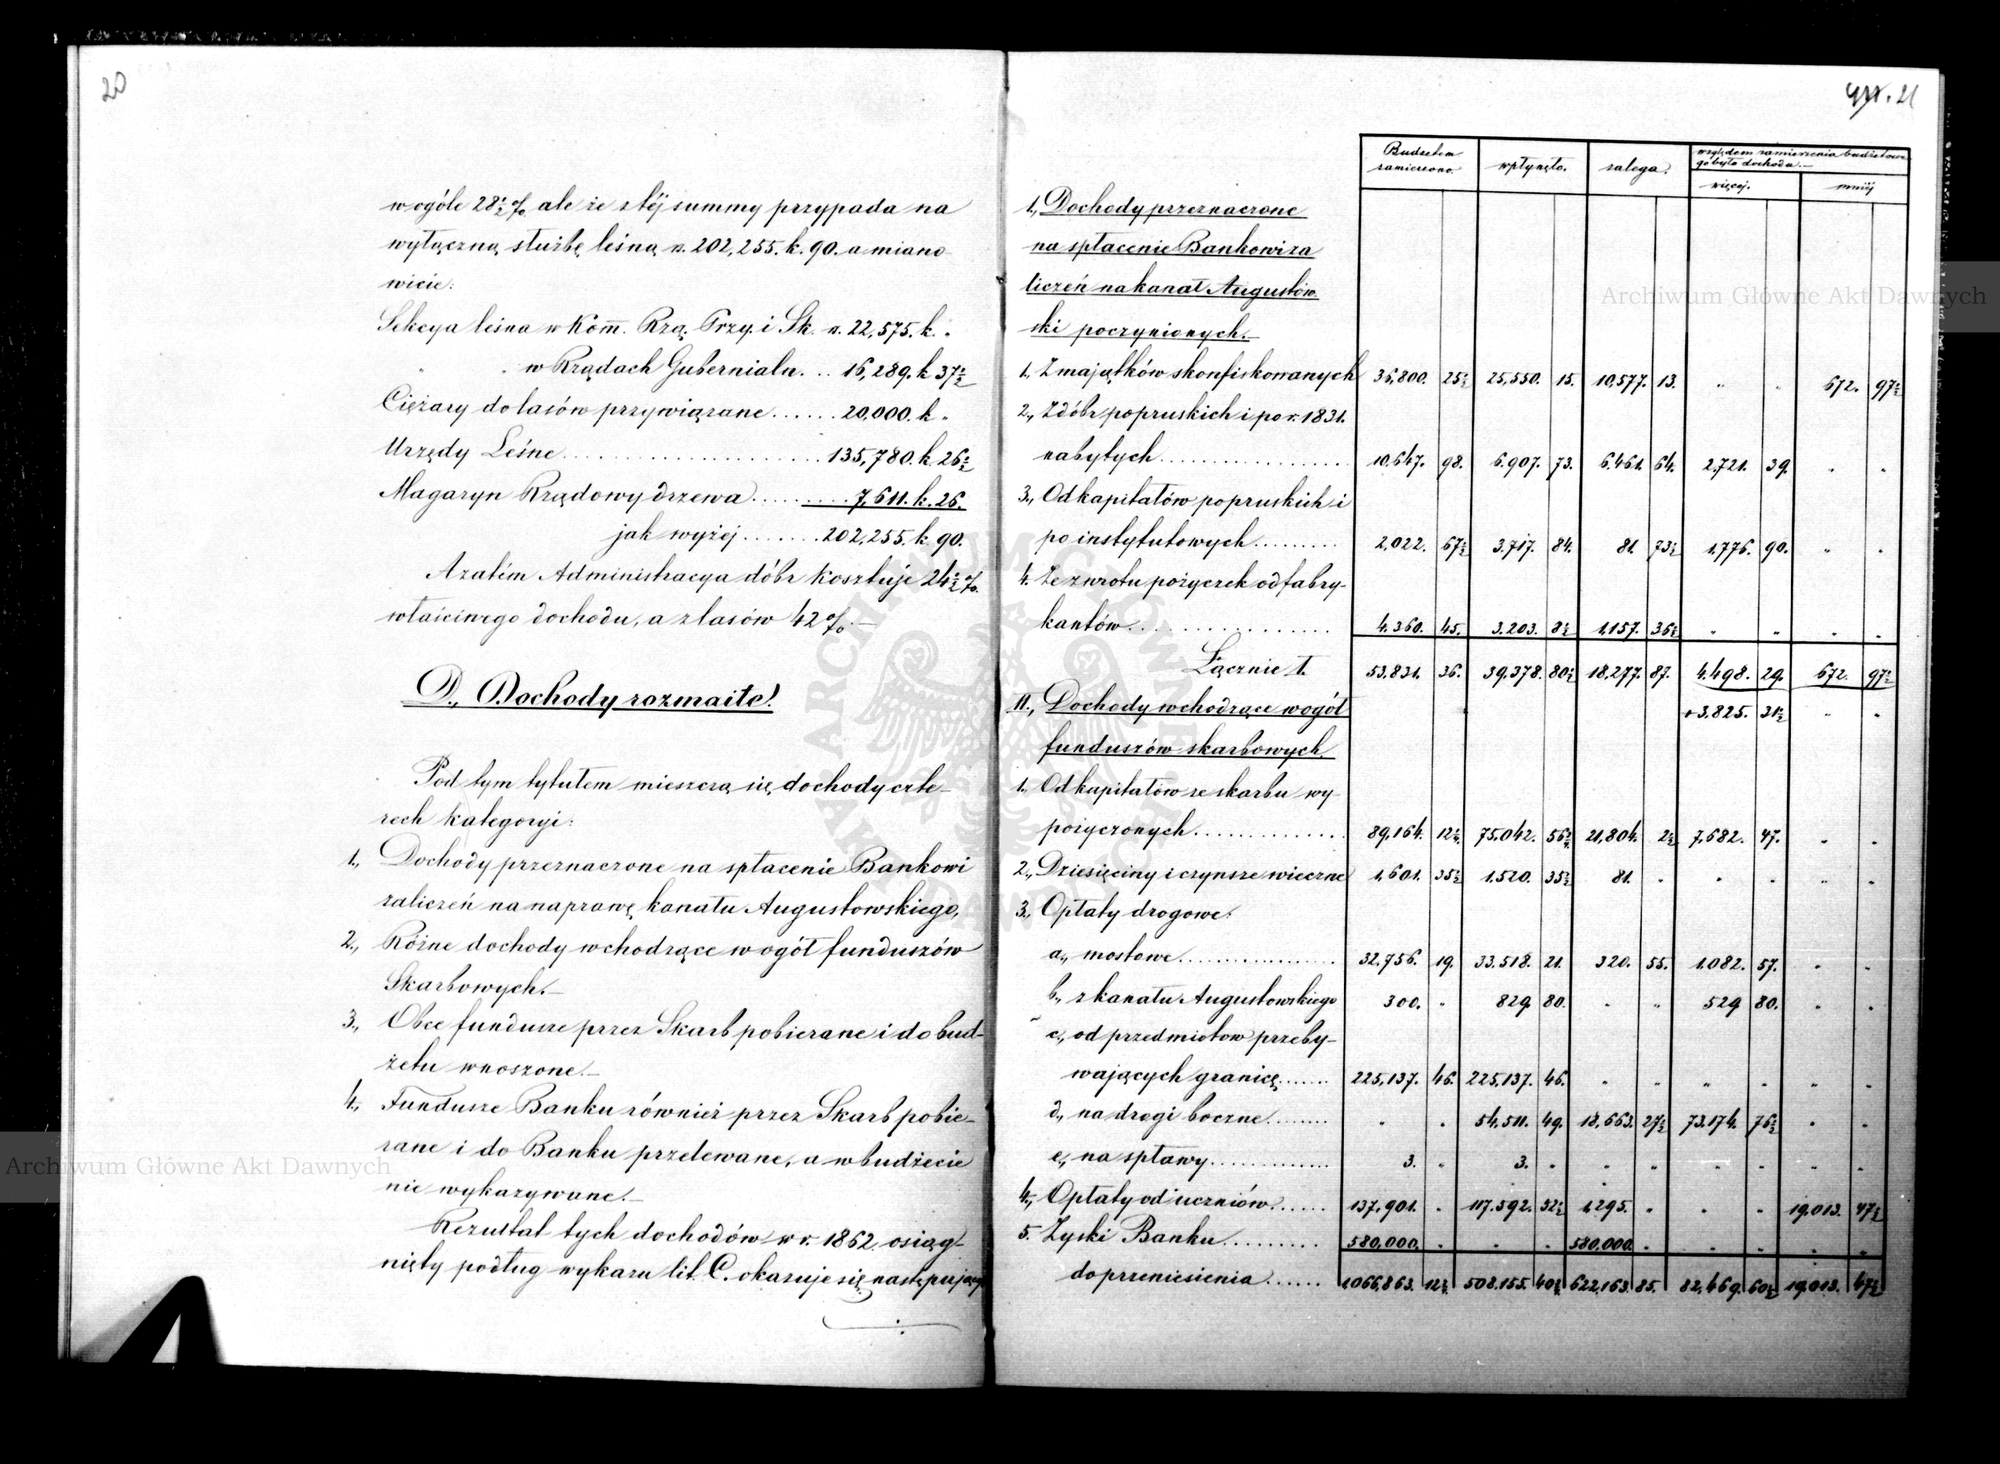 20
w ogóle 28½% ale że z téj summy przypada na
wyłączną służbę leśną rs. 202,255. k. 90. a miano
wicie:
Sekcya leśna w Kom. Rzą. Przy. i Sk. rs. 22,575. k. „
„ „ w Rządach Gubernialn. .. 16,289. k 37½
Ciężary do lasów przywiązane ...... 20,000. k „
Urzędy Leśne ........ 135,780. k. 26½
Magazyn Rządowy drzewa ......... 7,611. k. 26.
jak wyżej ....... 202,255. k. 90.
Azatém Administracya dóbr kosztuje 24½%.
właściwego dochodu, a z lasów 42%.—
D., Dochody rozmaite.
Pod tym tytułem mieszczą się dochody czte-
rech kategoryi:
1., Dochody przeznaczone na spłacenie Bankowi
zaliczeń na naprawę kanału Augustowskiego,
2., Różne dochody wchodzące w ogół funduszów
Skarbowych.—
3., Obce fundusze przez Skarb pobierane i do bud-
żetu wnoszone.—
4., Fundusze Banku również przez Skarb pobie-
rane i do Banku przelewane, a w budżecie
nie wykazywane.—
Rezultat tych dochodów w r. 1862 osiąg-
nięty podług wykazu lit. C. okazuje się następujący
21
Budżetem zamierzono. wpłynęło. zalega. względem zamierzenia budżetowe
go było dochodu.—
więcej. mniéj
1., Dochody przeznaczone
na spłacenie Bankowi za
liczeń na kanał Augustow
ski poczynionych.—
1., Z majątków skonfiskowanych 36,800. 25½ 25,550. 15. 10,577. 13. „ „ 672. 97½
2., Z dóbr popruskich i po r. 1831.
nabytych ........ 10,647. 98. 6,907. 73. 6,461. 64. 2,721. 39. „ „
3., Od kapitałów popruskich i
po instytutowych ......... 2,022. 67½ 3,717. 84. 81. 73½ 1,776. 90. „ „
4. Ze zwrotu pożyczek od fabry-
kantów ........ 4,360. 45. 3,203. 8½ 1,157. 36½ „ „ „ „
Łącznie 1. 53,831. 36. 39,378. 80½ 18,277. 87. 4,498. 29. 672. 97½
II., Dochody wchodzące w ogół + 3,825. 31½ „ „
funduszów skarbowych.
1. Od kapitałów ze skarbu wy-
pożyczonych ........ 89,164. 12½ 75,042. 56½ 21,804. 2½ 7,682. 47. „ „
2., Dziesięciny i czynsze wieczne 1,601. 35½ 1,520. 35½ 81. „ „ „ „ „
3., Opłaty drogowe:
a., mostowe ........ 32,756. 19. 33,518. 21. 320. 55. 1,082. 57. „ „
b., z kanału Augustowskiego 300. „ 829. 80. „ „ 529 80. „ „
c., od przedmiotow przeby-
wających granicę ....... 225,137. 46. 225,137. 46. „ „ „ „ „ „
d., na drogi boczne ........ „ „ 54,511. 49. 18,663. 27½ 73,174. 76½ „ „
e., na spławy ........ 3. „ 3. „ „ „ „ „ „ „
4., Opłaty od uczniów ...... 137,901. „ 117,592. 52½ 1,295. „ „ „ 19,013. 47½
5. Zyski Banku .......... 580,000. „ „ „ 580,000. „ „ „ „ „
do przeniesienia ...... 1,066,863. 12½ 508,155. 40½ 622,163. 85. 82,469. 60½ 19,013. 47½
Archiwum Główne Akt Dawnych
Archiwum Główne Akt Dawnych
ARCHIWUM GŁÓWNE AKT DAWNYCH